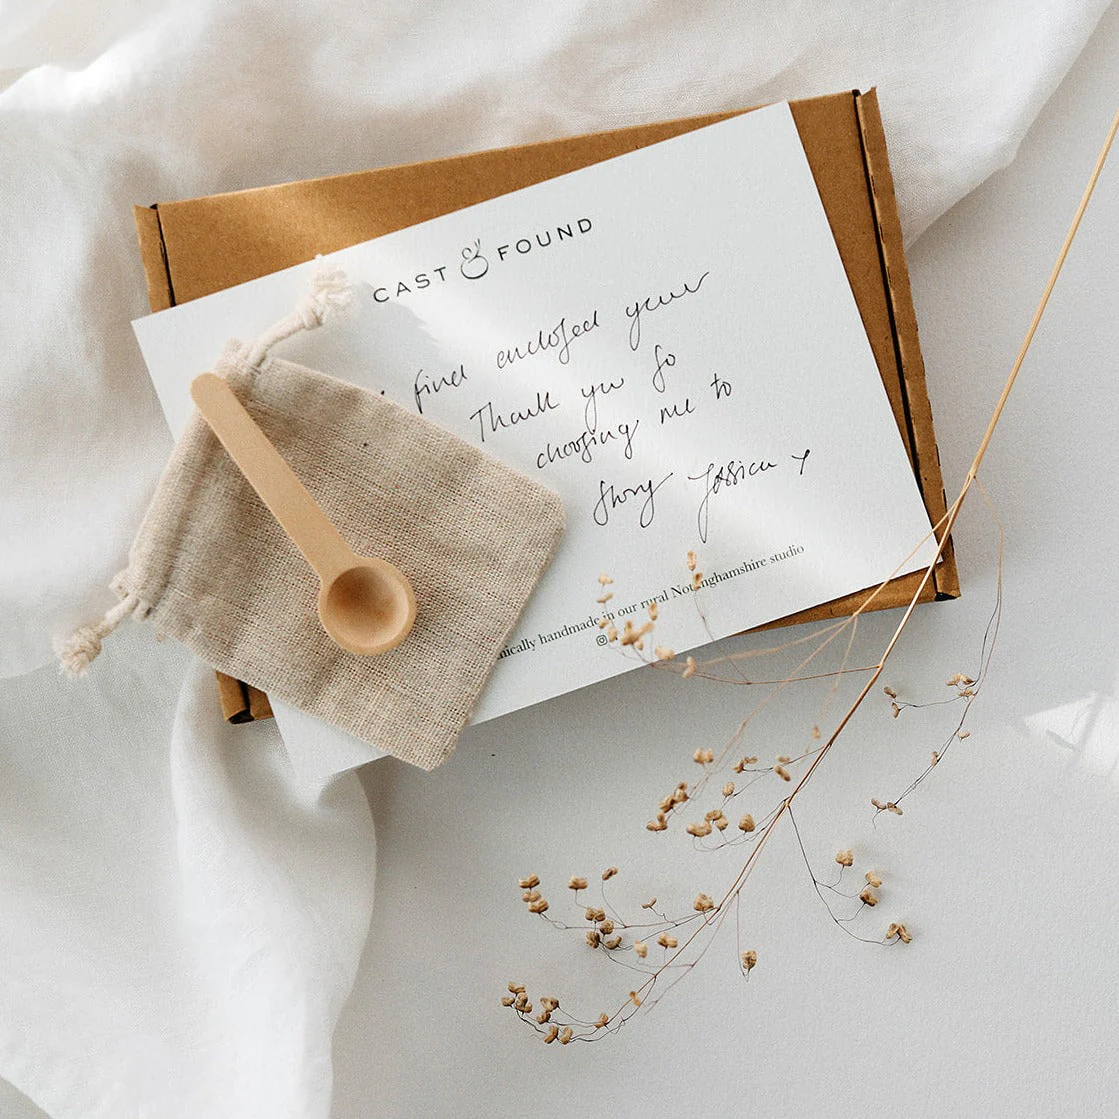 CAST & FOUND
find enclosed your
Thank you so
choosing me to
story Jessica x
nically handmade in our rural Nottinghamshire studio